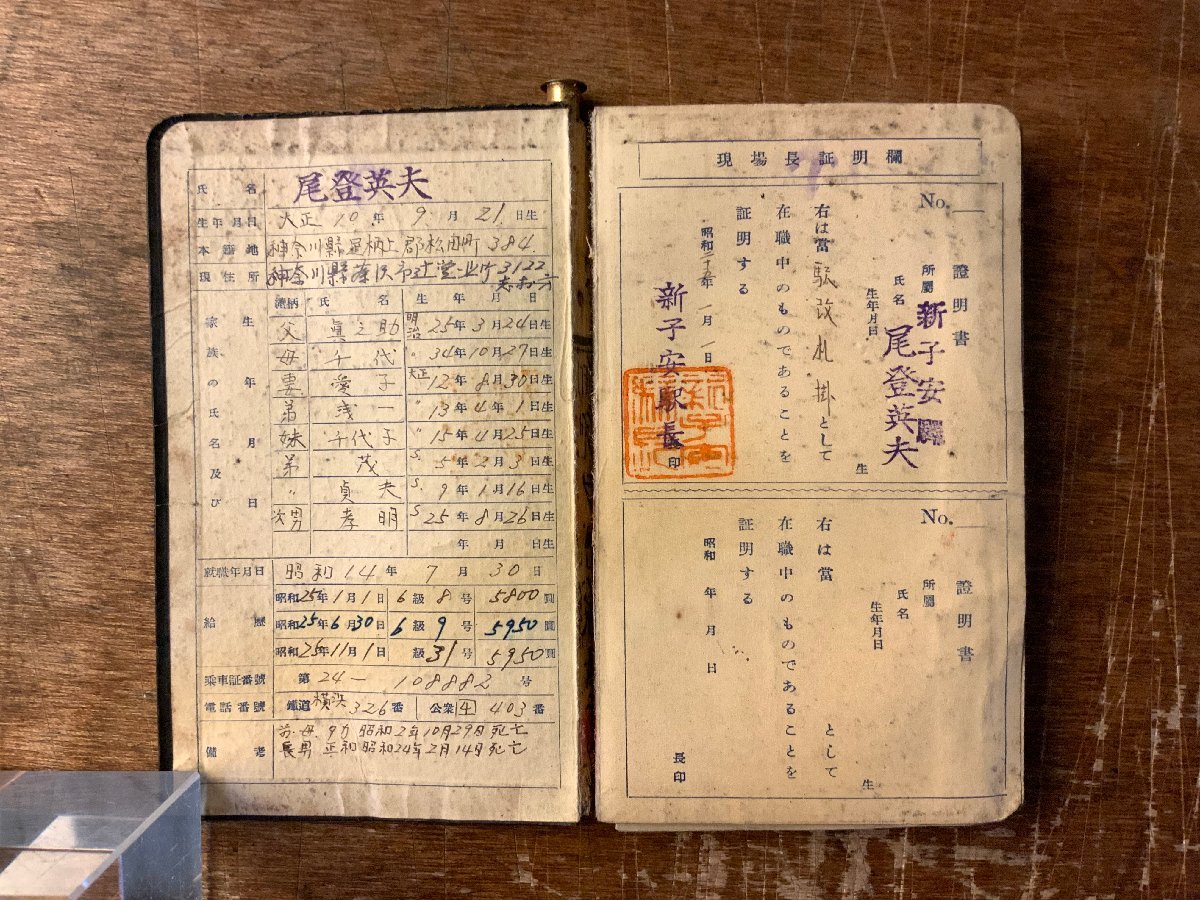 氏名 尾登英夫
生年月日 大正10年9月21日生
本籍地 神奈川縣足柄上郡松田町384
現住所 神奈川縣藤沢市辻堂 3122
家族の氏名及び生年月日
続柄 氏名 生年月日
父 真之助 明治25年3月24日生
母 千代 〃34年10月27日生
妻 愛子 大正12年8月30日生
弟 一 〃13年4月1日生
妹 千代子 〃15年4月25日生
弟 茂 S.5年2月3日生
〃 貞夫 S.9年1月16日生
次男 孝明 S25年8月26日生
年月日生
就職年月日 昭和14年7月30日
給歴 昭和25年1月1日 6級8号 5800圓
昭和25年6月30日 6級9号 5950圓
昭和26年11月1日 級31号 5950圓
乗車証番號 第24-108882号
電話番號 鐵道横浜326番 公衆4 403番
備考 母 タカ 昭和2年10月29日死亡
長男 正和 昭和24年2月14日死亡
現場長証明欄
No.
證明書
所屬 新子安驛
氏名 尾登英夫
生年月日 生
右は當駅改札掛として
在職中のものであることを
証明する
昭和二十六年一月一日
新子安駅長印
No.
證明書
所屬
氏名
生年月日 生
右は當 として
在職中のものであることを
証明する
昭和 年 月 日
長印